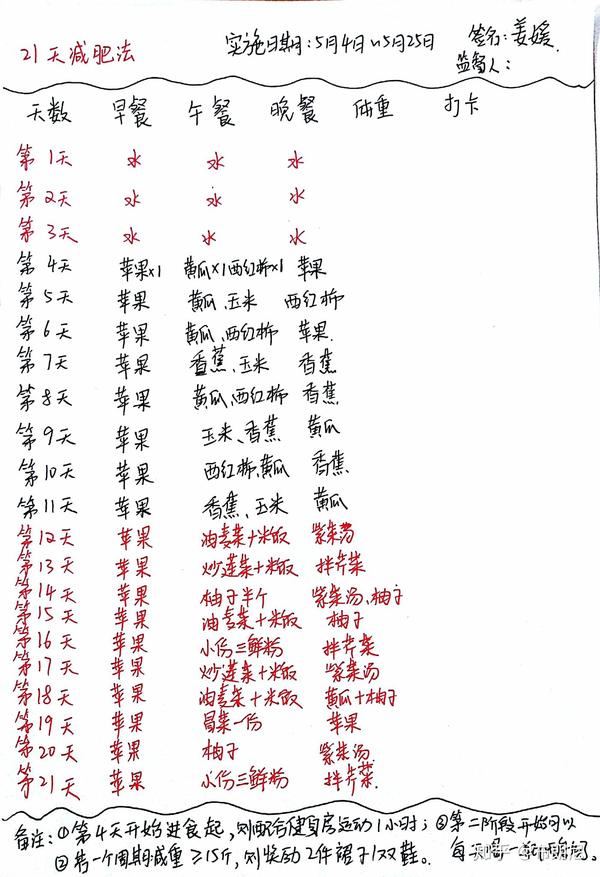 21天减肥法 实施日期:5月4日~5月25日 签名:姜媛.
监督人:
天数 早餐 午餐 晚餐 体重 打卡
第1天 水 水 水
第2天 水 水 水
第3天 水 水 水
第4天 苹果×1 黄瓜×1西红柿×1 苹果
第5天 苹果 黄瓜、玉米 西红柿
第6天 苹果 黄瓜、西红柿 苹果.
第7天 苹果 香蕉、玉米 香蕉
第8天 苹果 黄瓜、西红柿 香蕉
第9天 苹果 玉米、香蕉 黄瓜
第10天 苹果 西红柿、黄瓜 香蕉
第11天 苹果 香蕉、玉米 黄瓜
第12天 苹果 油麦菜+米饭 紫菜汤
第13天 苹果 炒莲菜+米饭 拌芹菜
第14天 苹果 柚子半个 紫菜汤、柚子
第15天 苹果 油麦菜+米饭 柚子
第16天 苹果 小份三鲜粉 拌芹菜
第17天 苹果 炒莲菜+米饭 紫菜汤
第18天 苹果 油麦菜+米饭 黄瓜+柚子
第19天 苹果 冒菜一份 苹果
第20天 苹果 柚子 紫菜汤
第21天 苹果 小份三鲜粉 拌芹菜.
备注:①第4天开始进食起,则配合健身房运动1小时;③第二阶段开始可以
②若一个周期减重≥15斤,则奖励2件裙子1双鞋。 每 喝一
知乎